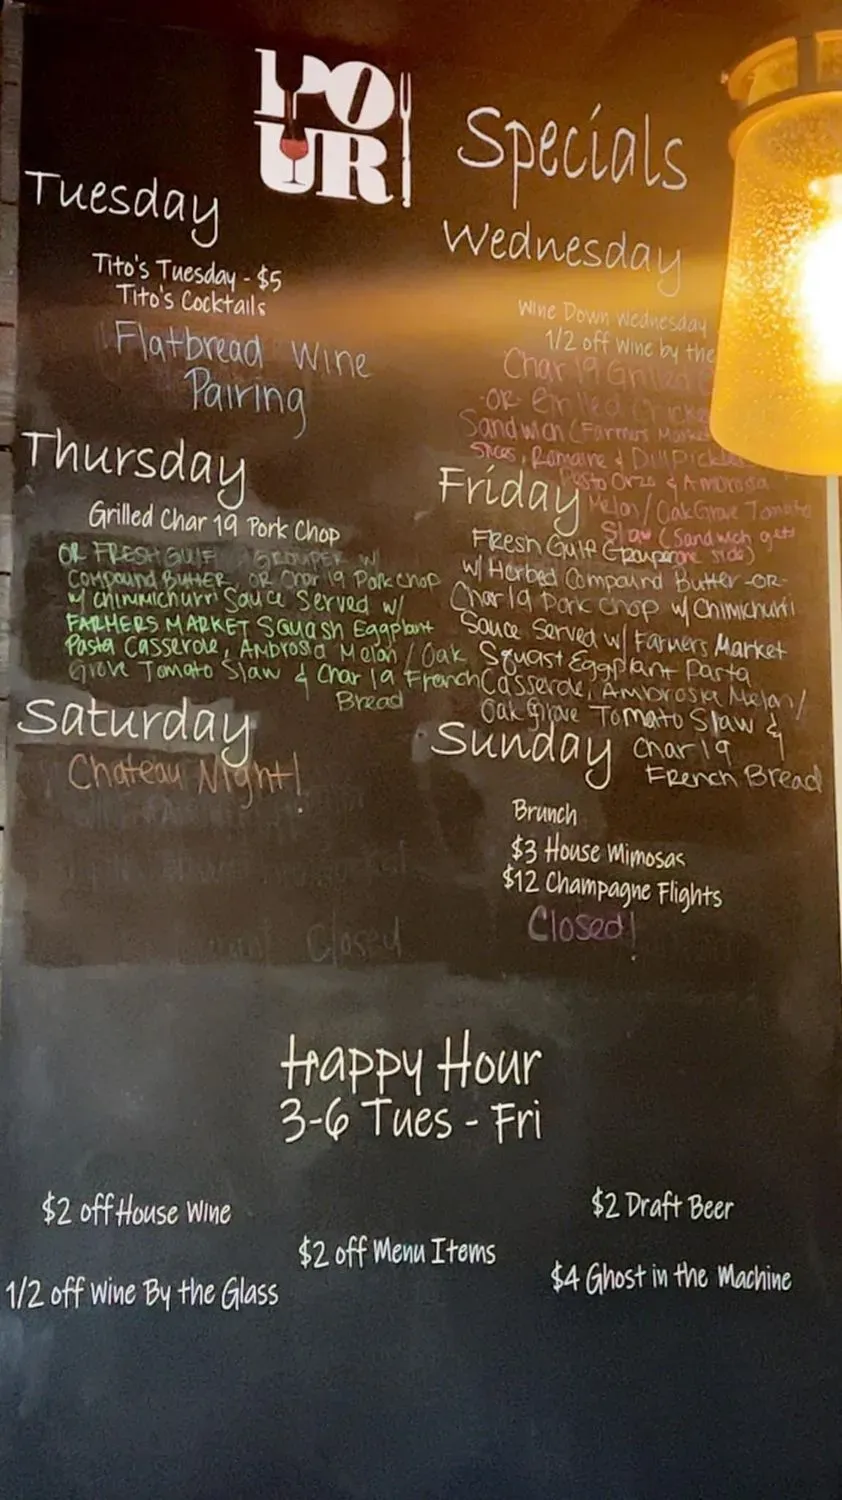 POUR
Specials
Tuesday
Tito's Tuesday - $5
Tito's Cocktails
Flatbread Wine
Pairing
Wednesday
Wine Down Wednesday
1/2 off Wine by the
Char 19 Grilled
-OR- Grilled
Sandwich (Farmers Market
Romaine & Dill Pickle
Orzo & Ambrosia
Melon / Oak Grove Tomato
Slaw (Sandwich gets
one side)
Thursday
Grilled Char 19 Pork Chop
OR FRESH GULF GROUPER w/
COMPOUND BUTTER, OR Char 19 Pork chop
w/ Chimmichurri Sauce Served w/
FARMERS MARKET Squash Eggplant
Pasta Casserole, Ambrosia Melon / Oak
Grove Tomato Slaw & Char 19 French
Bread
Friday
Fresh Gulf Grouper
w/ Herbed Compound Butter -OR-
Char 19 Pork Chop w/ Chimichurri
Sauce Served w/ Farmers Market
Squast Eggplant Pasta
Casserole, Ambrosia Melon /
Oak Grove Tomato Slaw &
Char 19
French Bread
Saturday
Chateau Night!
Closed
Sunday
Brunch
$3 House Mimosas
$12 Champagne Flights
Closed!
Happy Hour
3-6 Tues - Fri
$2 off House Wine
$2 Draft Beer
$2 off Menu Items
1/2 off Wine By the Glass
$4 Ghost in the Machine